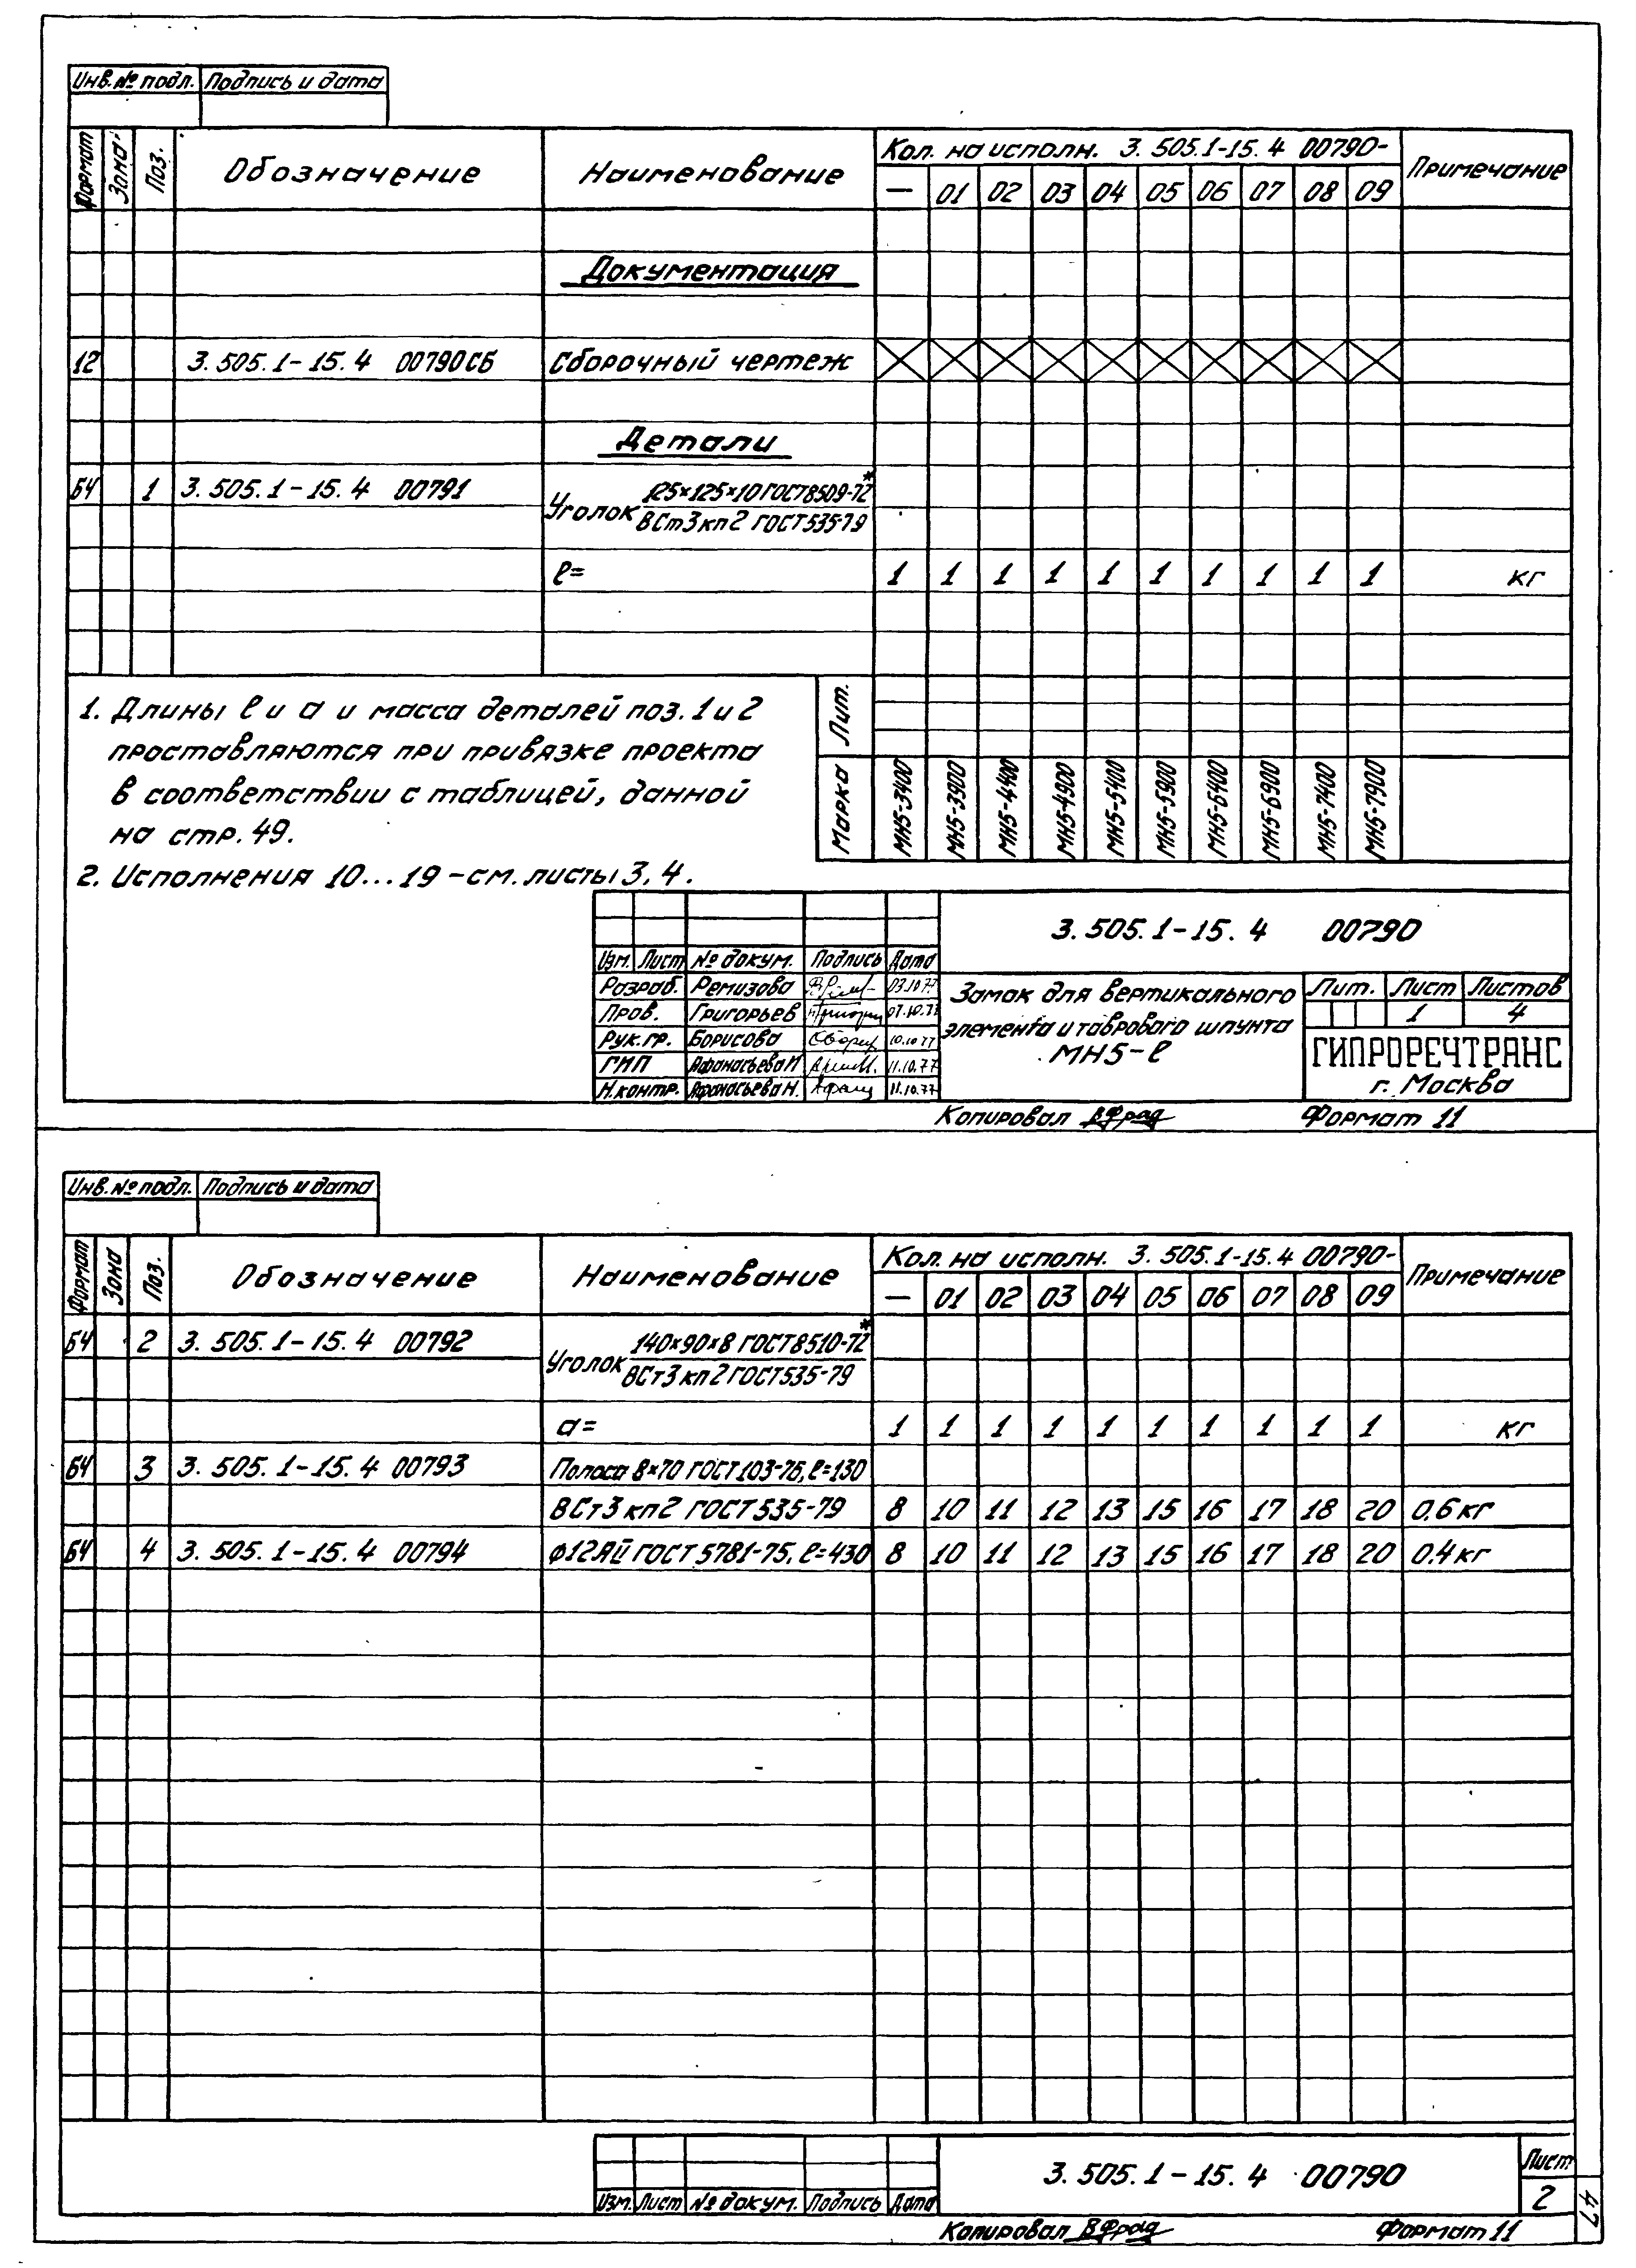 Инв. № подл. Подпись и дата
Формат Зона Поз. Обозначение Наименование Кол. на исполн. 3.505.1-15.4 00790- Примечание
— 01 02 03 04 05 06 07 08 09
Документация
12 3.505.1-15.4 00790СБ Сборочный чертеж
Детали
БЧ 1 3.505.1-15.4 00791 Уголок 125×125×10 ГОСТ 8509-72*
ВСт3кп2 ГОСТ 535-79
ℓ= 1 1 1 1 1 1 1 1 1 1 кг
1. Длины ℓ и а и масса деталей поз. 1 и 2
проставляются при привязке проекта
в соответствии с таблицей, данной
на стр. 49.
2. Исполнения 10...19 - см. листы 3, 4.
Лит.
Марка МН5-3400 МН5-3900 МН5-4400 МН5-4900 МН5-5400 МН5-5900 МН5-6400 МН5-6900 МН5-7400 МН5-7900
3.505.1-15.4 00790
Изм. Лист № докум. Подпись Дата
Разраб. Ремизова 03.10.77
Пров. Григорьев 07.10.77
Рук.гр. Борисова 10.10.77
ГИП Афанасьева Н. 11.10.77
Н.контр. Афанасьева Н. 11.10.77
Замок для вертикального
элемента и таврового шпунта
МН5-ℓ
Лит. Лист Листов
1 4
ГИПРОРЕЧТРАНС
г. Москва
Копировал Формат 11
Инв. № подл. Подпись и дата
Формат Зона Поз. Обозначение Наименование Кол. на исполн. 3.505.1-15.4 00790- Примечание
— 01 02 03 04 05 06 07 08 09
БЧ 2 3.505.1-15.4 00792 Уголок 140×90×8 ГОСТ 8510-72*
ВСт3кп2 ГОСТ 535-79
а= 1 1 1 1 1 1 1 1 1 1 кг
БЧ 3 3.505.1-15.4 00793 Полоса 8×70 ГОСТ 103-76, ℓ=130
ВСт3кп2 ГОСТ 535-79 8 10 11 12 13 15 16 17 18 20 0,6 кг
БЧ 4 3.505.1-15.4 00794 ф12АII ГОСТ 5781-75, ℓ=430 8 10 11 12 13 15 16 17 18 20 0,4 кг
3.505.1-15.4 00790
Лист
2
Изм. Лист № докум. Подпись Дата
Копировал Формат 11
47